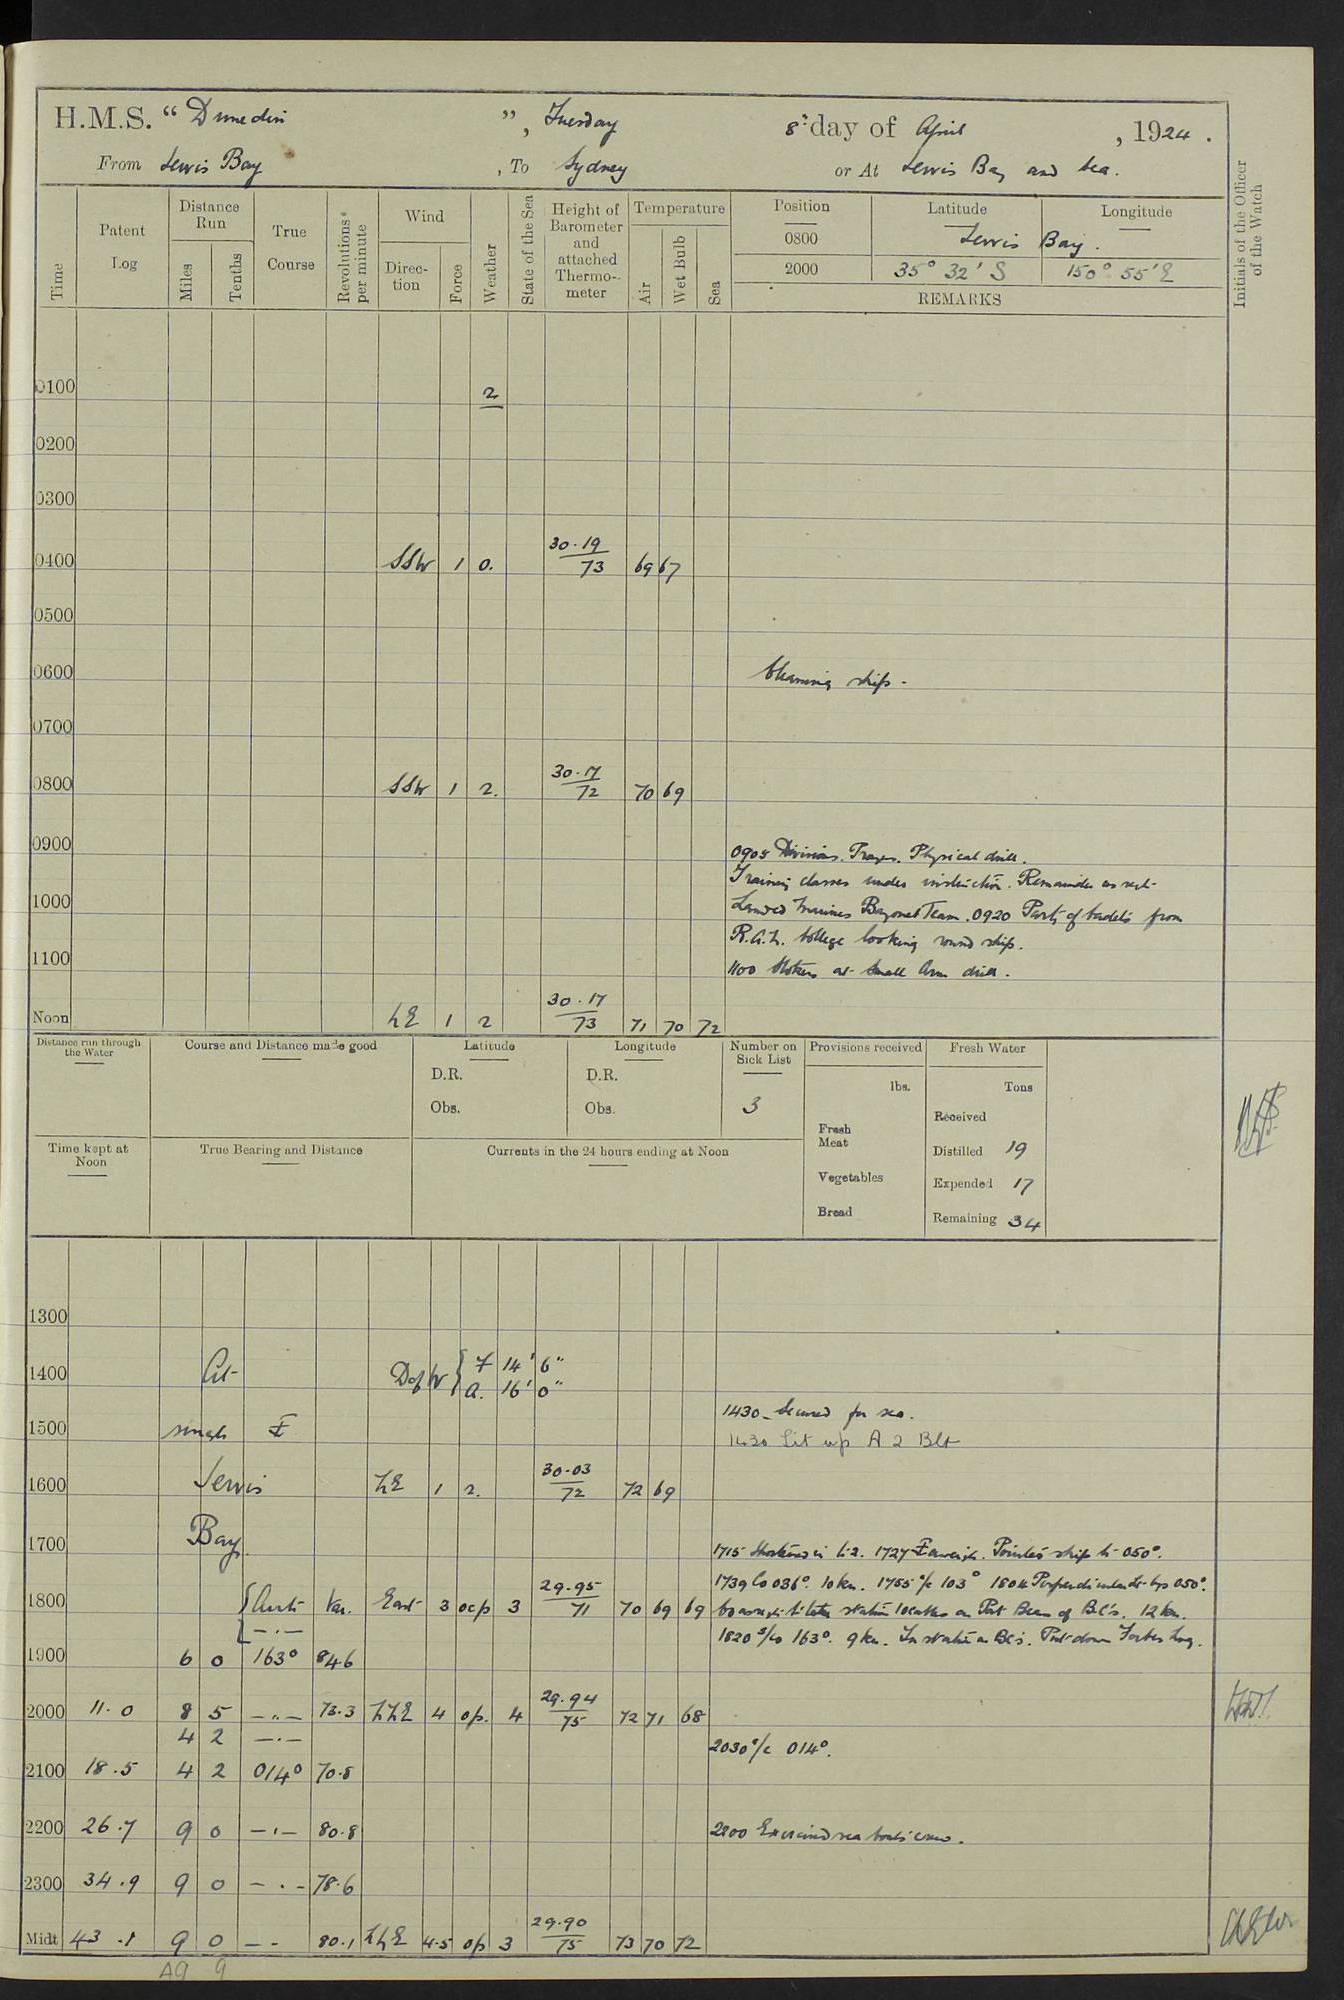 H.M.S. “ Dunedin ”, Tuesday 8th day of April , 1924 .
From Jervis Bay , To Sydney or At Jervis Bay and Sea.
Time
Patent Log
Distance Run
Miles
Tenths
True Course
Revolutions per minute
Wind
Direction
Force
Weather
State of the Sea
Height of Barometer and attached Thermometer
Temperature
Air
Wet Bulb
Sea
Position Latitude Longitude
0800 Jervis Bay.
2000 35° 32' S 150° 55' E
REMARKS
Initials of the Officer of the Watch
0100 2
0200
0300
0400 SSW 1 0. 30.19 73 69 67
0500
0600 Cleaning ship.
0700
0800 SSW 1 2. 30.17 72 70 69
0900 0905 Divisions. Prayers. Physical drill.
Training classes under instruction. Remainder as reqt.
1000 Landed Marines Bayonet Team. 0920 Party of Cadets from
R.A.N. College looking round ship.
1100 1100 Stokers at Small Arm drill.
Noon NE 1 2 30.17 73 71 70 72
Distance run through the Water
Course and Distance made good
Latitude
D.R.
Obs.
Longitude
D.R.
Obs.
Number on Sick List
3
Provisions received
lbs.
Fresh Meat
Vegetables
Bread
Fresh Water
Tons
Received
Distilled 19
Expended 17
Remaining 34
Time kept at Noon
True Bearing and Distance
Currents in the 24 hours ending at Noon
1300
1400 At D of W { F 14' 6"
A. 16' 0"
1430 Secured for sea.
1500 single
1430 Lit up A 2 Blr
1600 Jervis NE 1 2. 30.03 72 72 69
1700 Bay.
1715 Shortened in to 2. 1727 aweigh. Pointed ship to 050°.
1739 Co 036°. 10 kn. 1755 a/c 103° 1804
1800 Var. East 3 ocp 3 29.95 71 70 69 69
station on Port Beam of B.C's. 12 kn.
1820 a/c 163°. 9 kn. In station on BC's. Put down Forbes Log.
1900 6 0 163° 84.6
2000 11.0 8 5 —"— 73.3 NNE 4 op. 4 29.94 75 72 71 68
4 2 —"—
2030 a/c 014°.
2100 18.5 4 2 014° 70.8
2200 26.7 9 0 —"— 80.8 2200 Exercised sea boats crew.
2300 34.9 9 0 —"— 78.6
Midt 43.1 9 0 —"— 80.1 NNE 4.5 op 3 29.90 75 73 70 72
49 9